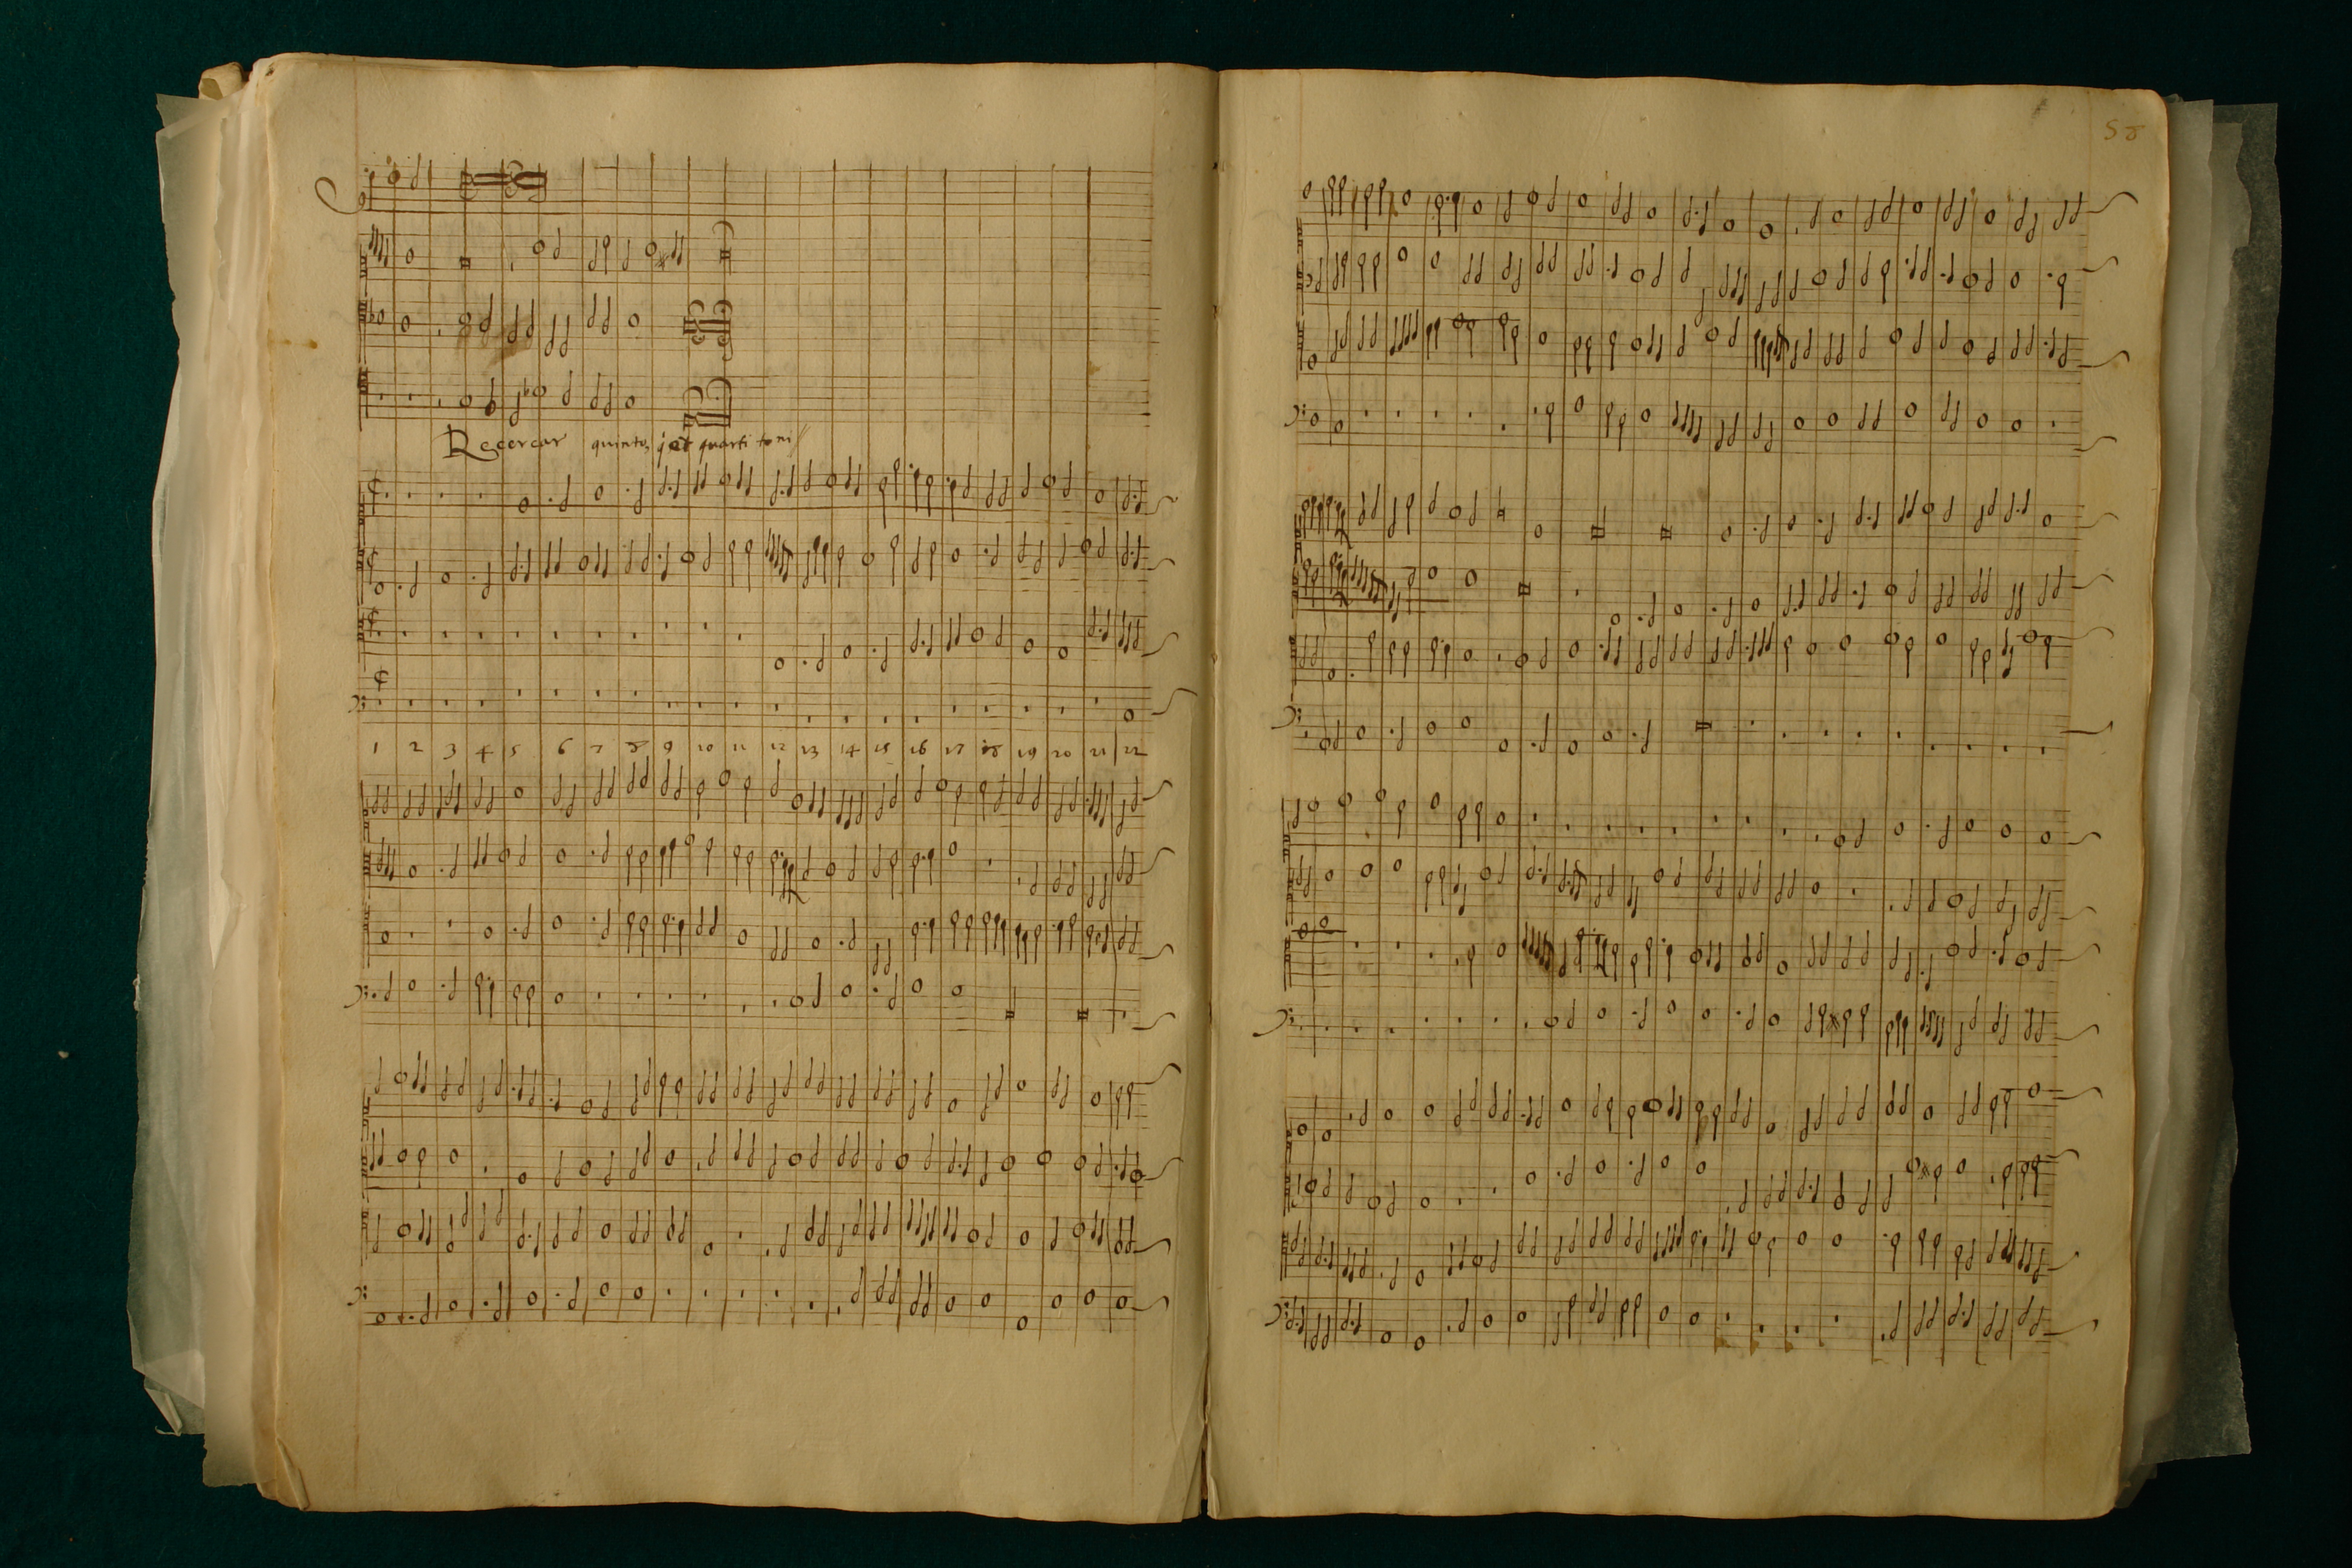 Recercar quinto, quarti toni
1 2 3 4 5 6 7 8 9 10 11 12 13 14 15 16 17 18 19 20 21 22
58